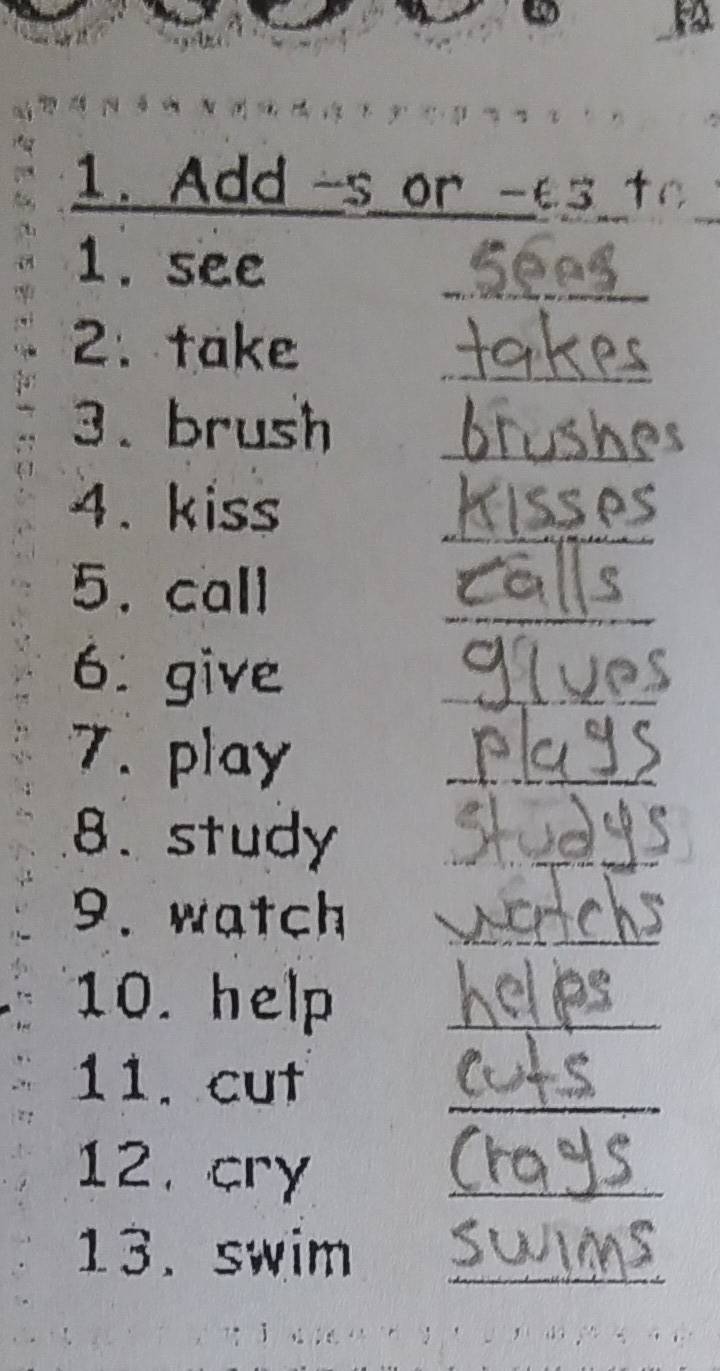 1. Add -s or -es to
1. see sees
2. take takes
3. brush brushes
4. kiss kisses
5. call calls
6. give gives
7. play plays
8. study studys
9. watch watchs
10. help helps
11. cut cuts
12. cry crays
13. swim swims